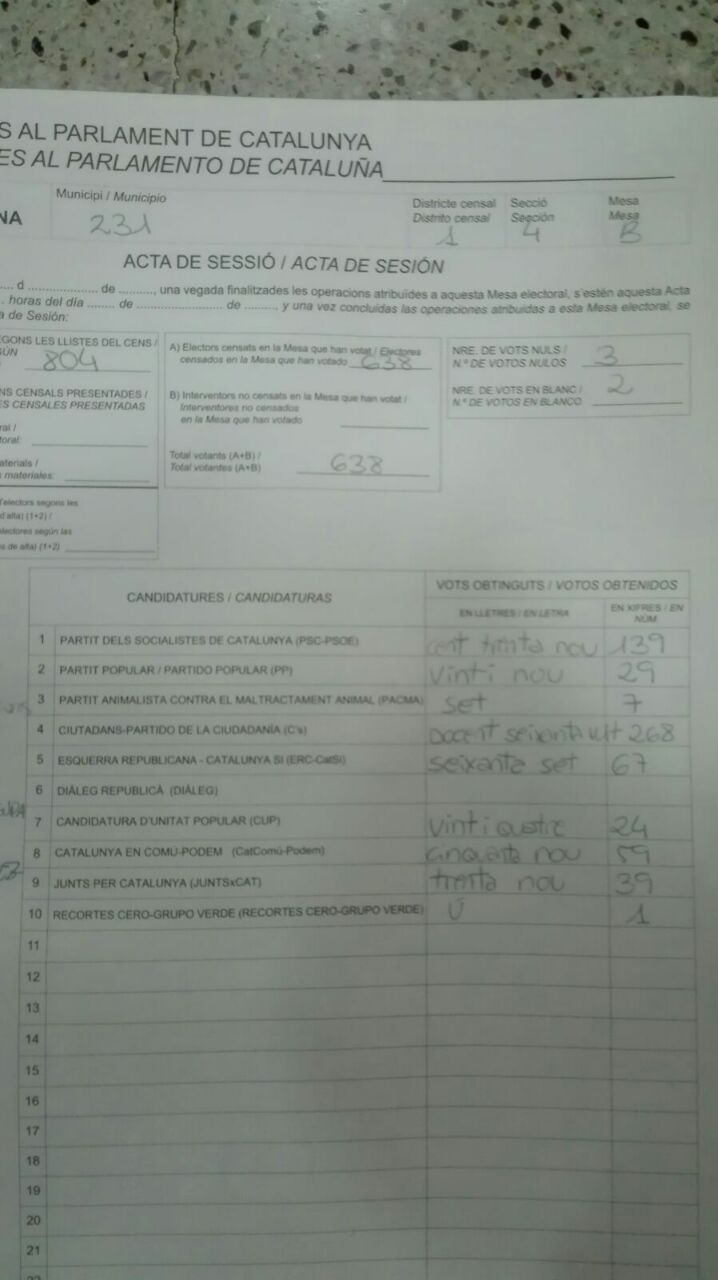 S AL PARLAMENT DE CATALUNYA
ES AL PARLAMENTO DE CATALUÑA
NA
Municipi / Municipio
231
Districte censal
Distrito censal
1
Secció
Sección
4
Mesa
Mesa
B
ACTA DE SESSIÓ / ACTA DE SESIÓN
.... d .................... de .........., una vegada finalitzades les operacions atribuïdes a aquesta Mesa electoral, s'estén aquesta Acta
. horas del día ........ de ........................ de .........., y una vez concluidas las operaciones atribuidas a esta Mesa electoral, se
a de Sesión:
EGONS LES LLISTES DEL CENS /
GÚN
804
NS CENSALS PRESENTADES /
ES CENSALES PRESENTADAS
ral /
toral:
aterials /
s materiales:
d'electors segons les
d'alta) (1+2) /
electores según las
s de alta) (1+2)
A) Electors censats en la Mesa que han votat / Electores
censados en la Mesa que han votado 638
B) Interventors no censats en la Mesa que han votat /
Interventores no censados
en la Mesa que han votado
Total votants (A+B) /
Total votantes (A+B)
638
NRE. DE VOTS NULS /
N.º DE VOTOS NULOS
3
NRE. DE VOTS EN BLANC /
N.º DE VOTOS EN BLANCO
2
CANDIDATURES / CANDIDATURAS
VOTS OBTINGUTS / VOTOS OBTENIDOS
EN LLETRES / EN LETRA
EN XIFRES / EN
NÚM
1 PARTIT DELS SOCIALISTES DE CATALUNYA (PSC-PSOE) cent trenta nou 139
2 PARTIT POPULAR / PARTIDO POPULAR (PP) vinti nou 29
3 PARTIT ANIMALISTA CONTRA EL MALTRACTAMENT ANIMAL (PACMA) set 7
4 CIUTADANS-PARTIDO DE LA CIUDADANÍA (C's) Docent seixanta vuit 268
5 ESQUERRA REPUBLICANA - CATALUNYA SÍ (ERC-CatSí) seixante set 67
6 DIÀLEG REPUBLICÀ (DIÀLEG)
7 CANDIDATURA D'UNITAT POPULAR (CUP) vinti quatre 24
8 CATALUNYA EN COMÚ-PODEM (CatComú-Podem) cinquanta nou 59
9 JUNTS PER CATALUNYA (JUNTSxCAT) trenta nou 39
10 RECORTES CERO-GRUPO VERDE (RECORTES CERO-GRUPO VERDE) Ú 1
11
12
13
14
15
16
17
18
19
20
21
22